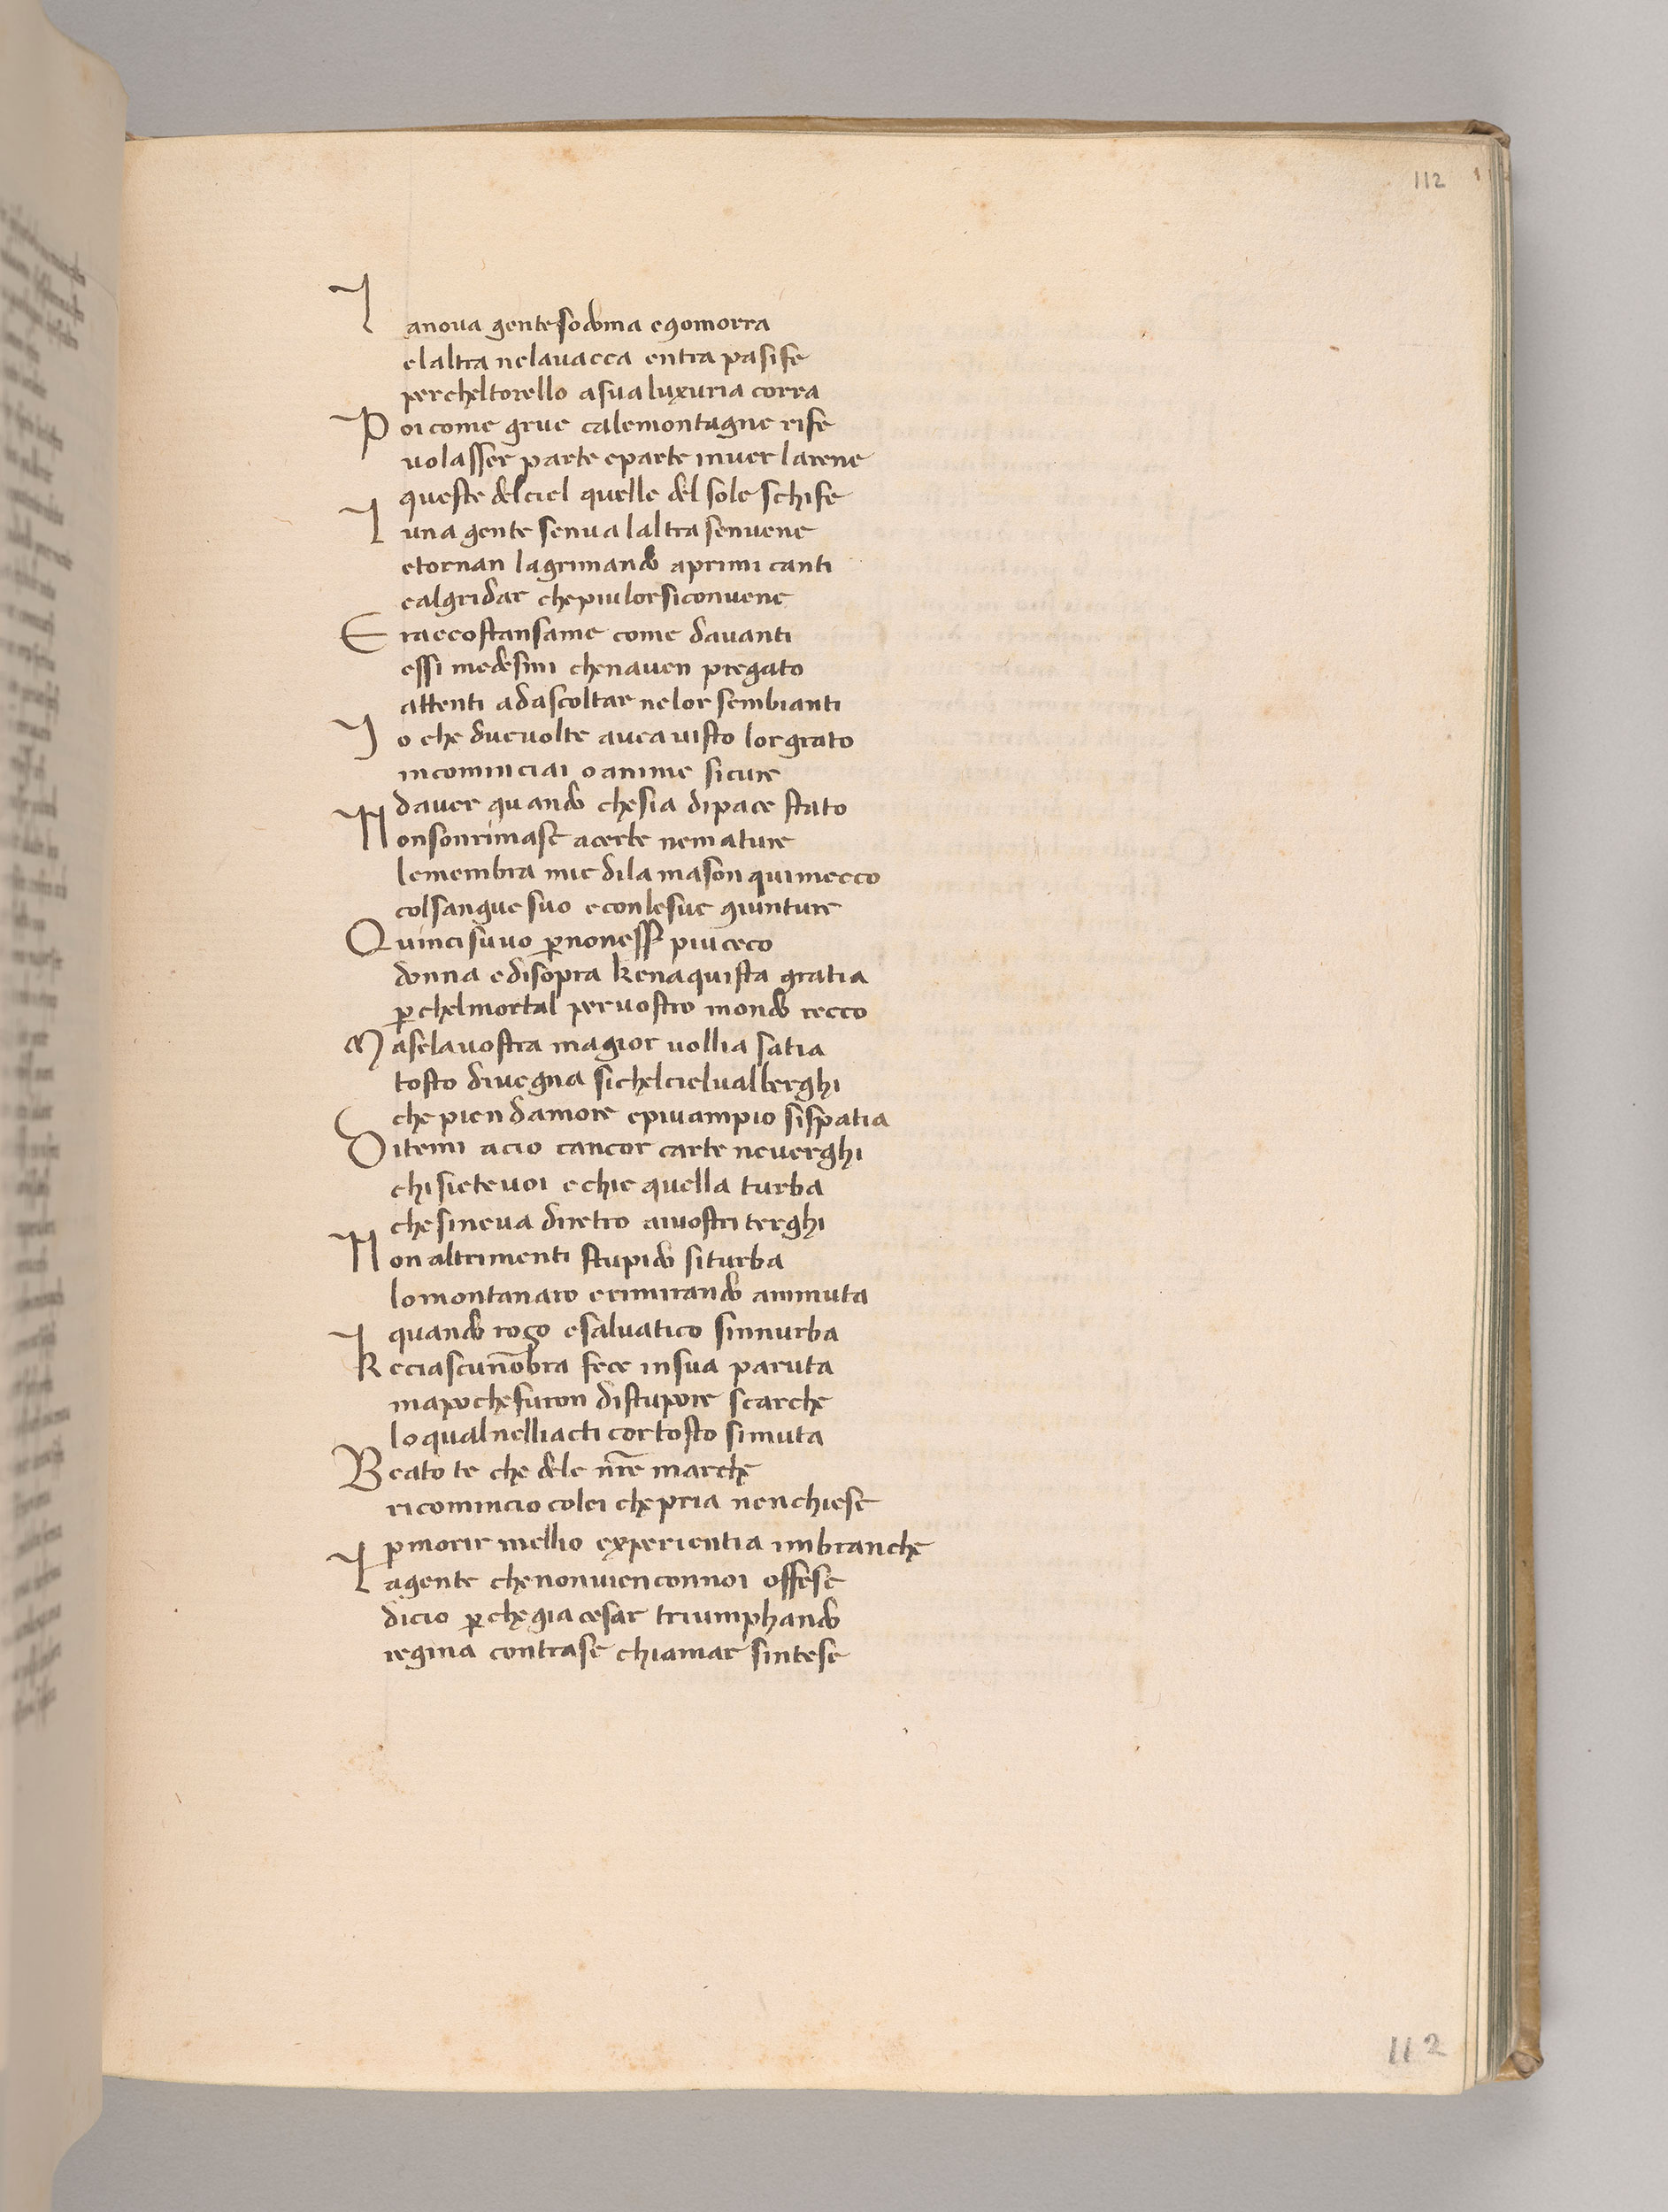 112
L anova gente sodoma egomorra
elaltra nelavacca entra pasife
percheltorello asua luxuria corra
P oi come grue calemontagne rife
volasser parte eparte inver larene
queste delciel quelle del sole schife
L una gente senva laltra senvene
etornan lagrimando aprimi canti
ealgridar chepiulorsiconvene
E raccostansame come davanti
essi medesimi chenaven pregato
attenti adascoltar nelor sembianti
I o che duevolte avea visto lorgrato
incominciai o anime sicure
daver quando chesia dipace stato
N onsonrimase acerbe nemature
lemembra mie dila mason quimecco
colsangue suo econlesue giunture
Q uincisuvo p̱nonesser piuceco
donna edisopra kenaquista gratia
p̱chelmortal pervostro mondo recco
M aselavostra magior vollia satia
tosto divegna sichelcielvalberghi
che pien damore epiuampio sispatia
D itemi acio cancor carte neverghi
chi sietevoi echie quella turba
chesineva dirietro aivostri terghi
N on altrimenti stupido siturba
lomontanaro erimirando ammuta
quando rogo esalvatico sinnurba
K eciascun̄obra fece insua paruta
mapoichefuron distupore scarche
loqualnelliacti cortosto simuta
B eato te che dele nr̄e marche
ricomincio colei chepria nenchiese
p̱morir mellio experientia imbranche
L agente chenonvienconnoi offese
dicio p̱chegia cesar triumphando
regina contrase chiamar sintese
112